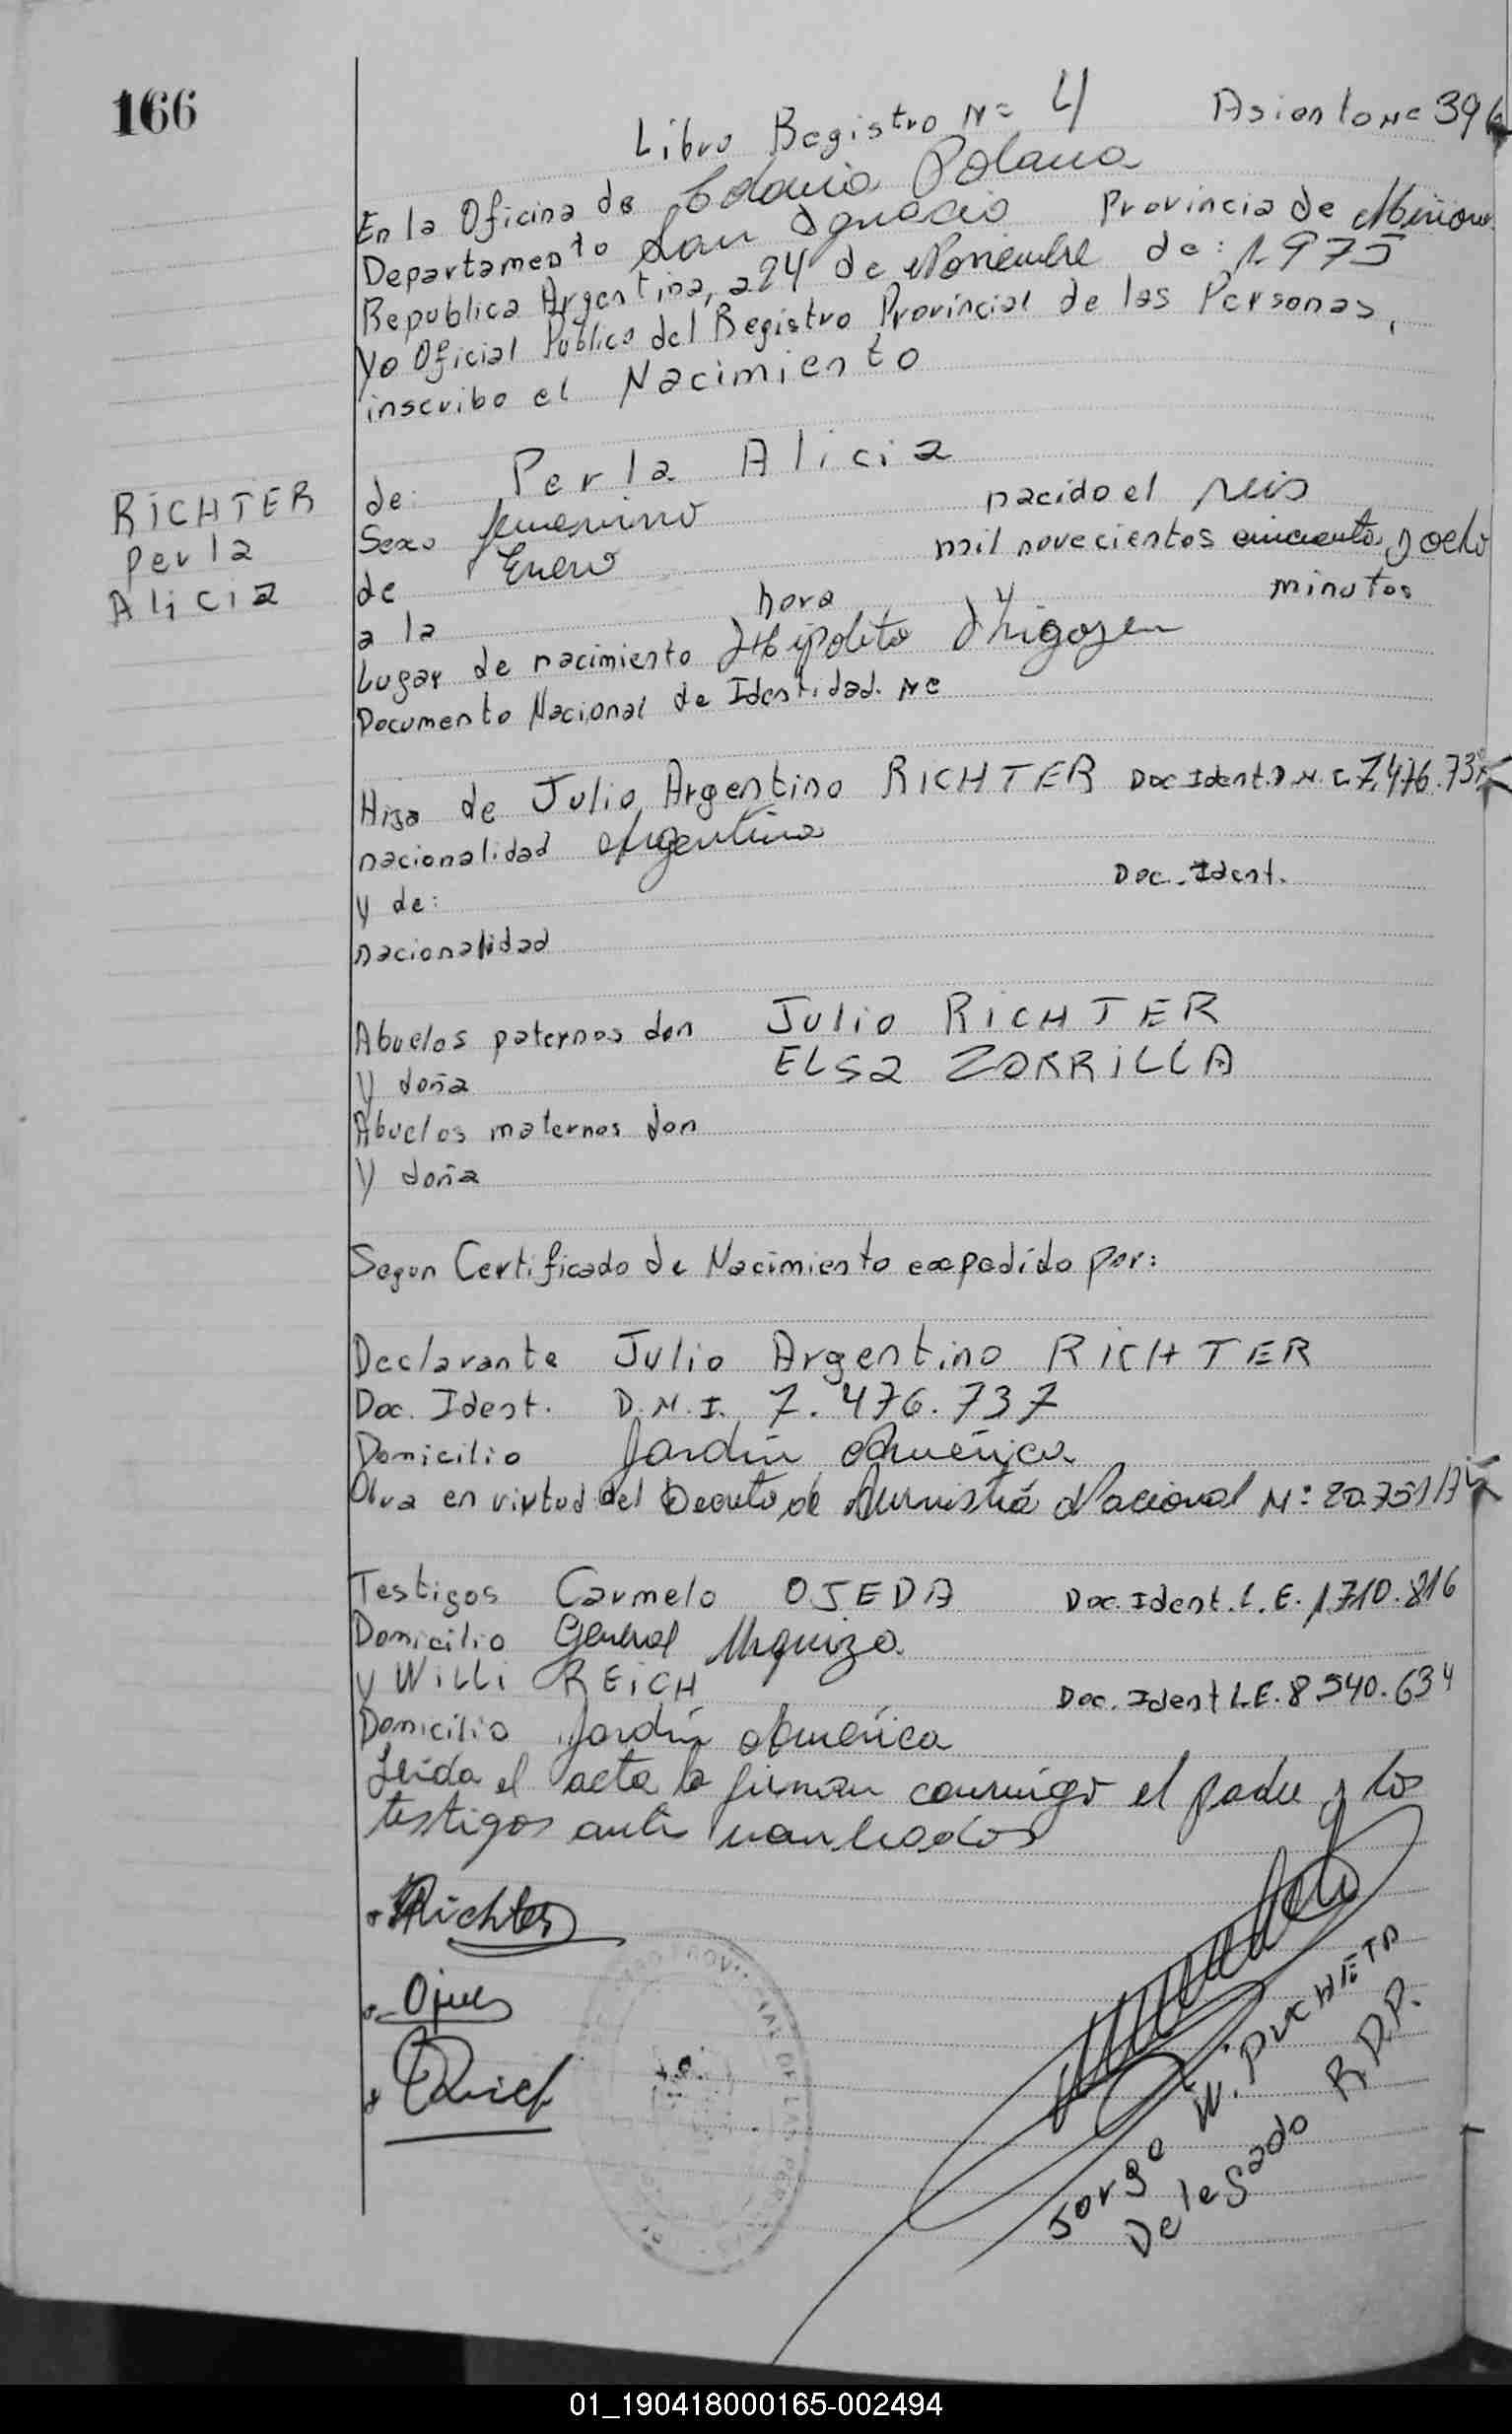 166
Libro Registro Nº 4 Asiento Nº 396
En la Oficina de Colonia Polana
Departamento San Ignacio Provincia de Misiones
Republica Argentina, a 24 de Noviembre de: 1.975
Yo Oficial Publico del Registro Provincial de las Personas,
inscribo el Nacimiento
RICHTER
Perla
Alicia
de: Perla Alicia
Sexo femenino nacido el seis
de Enero mil novecientos cincuenta y ocho
a la hora minutos
Lugar de nacimiento Hipólito Yrigoyen
Documento Nacional de Identidad. Nº
Hija de Julio Argentino RICHTER Doc Ident. D.N.I. 7.476.737
nacionalidad Argentina
y de: Doc. Ident.
nacionalidad
Abuelos paternos don Julio RICHTER
y doña ELSA ZORRILLA
Abuelos maternos don
y doña
Segun Certificado de Nacimiento expedido por:
Declarante Julio Argentino RICHTER
Doc. Ident. D.N.I. 7.476.737
Domicilio Jardín América
Obra en virtud del Decreto de Amnistía Nacional Nº 20.751/
Testigos Carmelo OJEDA Doc. Ident. L.E. 1.710.816
Domicilio General Urquiza
y WILLI REICH Doc. Ident L.E. 8.540.634
Domicilio Jardín América
Leída el acta la firman conmigo el padre y los
testigos ante nombrados
Richter
Reich
Jorge W. PUCHETA
Delegado R.P.P.
01_190418000165-002494